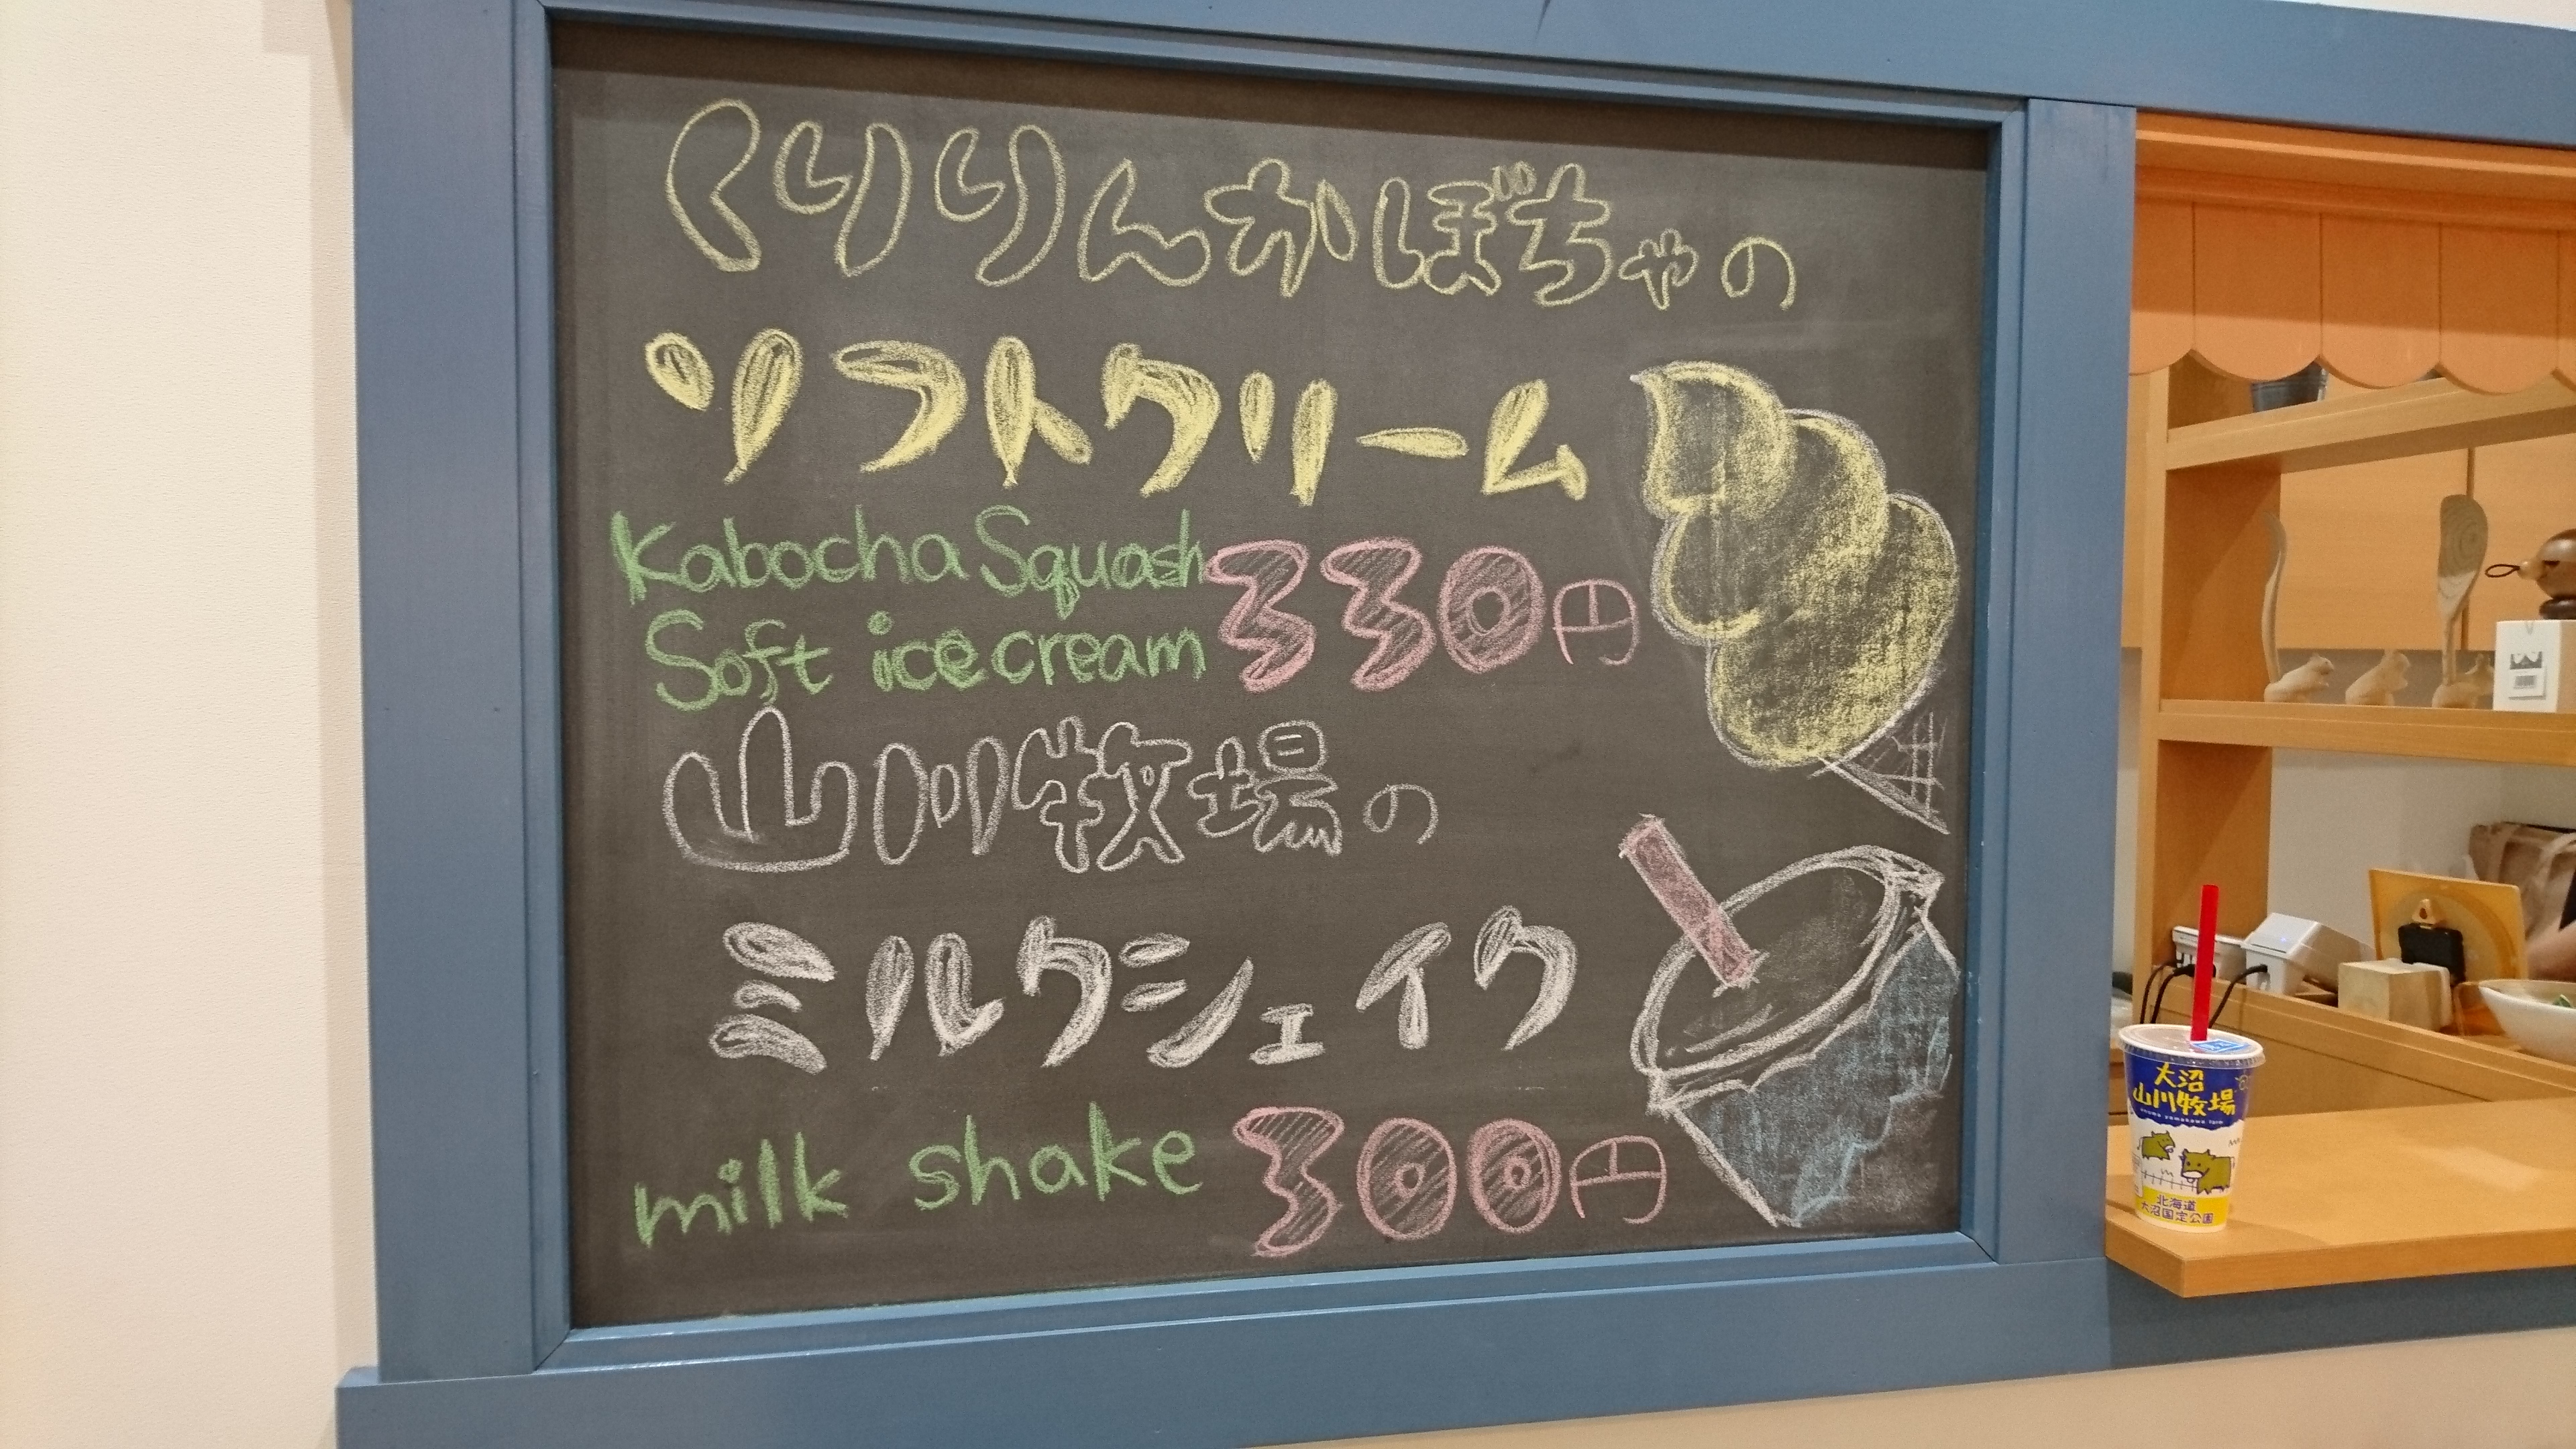 くりりんかぼちゃの
ソフトクリーム
Kabocha Squash
Soft ice cream 330円
山川牧場の
ミルクシェイク
milk shake 300円
大沼
山川牧場
北海道
大沼国定公園